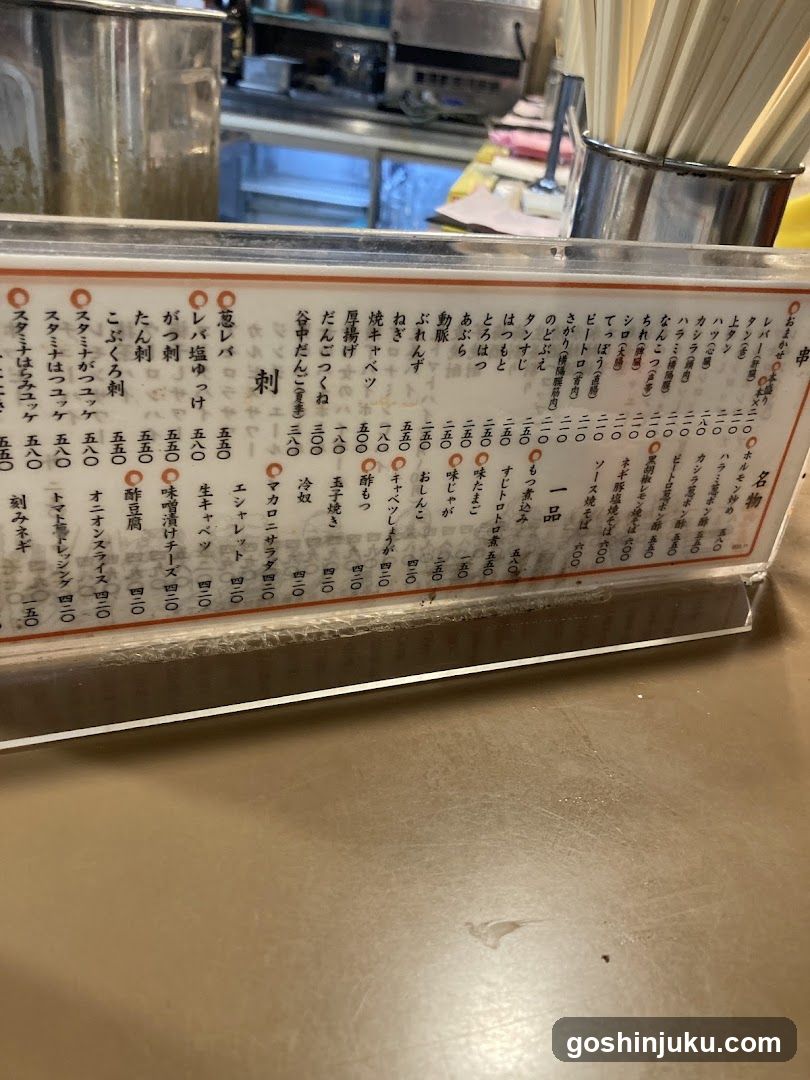 串
おまかせ
レバー(肝臓)
タン(舌)
上タン
ハツ(心臓)
カシラ(頭肉) 二〇
ハラミ(横隔膜)
なんこつ(声帯)
ちれ(脾臓)
シロ(大腸)
てっぽう(直腸)
ピートロ(首肉)
さがり(横隔膜筋肉)
のどぶえ
タンすじ 二五〇
はつもと
とろはつ
あぶら
動脈
ぶれんず
ねぎ
焼キャベツ 一八〇
厚揚げ
だんごつくね 三〇〇
谷中だんご(夏季) 三八〇
刺
葱レバ 五五〇
レバ塩ゆっけ 五八〇
がつ刺 五五〇
たん刺 五五〇
こぶくろ刺 五五〇
スタミナがつユッケ 五八〇
スタミナはつユッケ 五八〇
スタミナはらみユッケ 五八〇
名物
ホルモン炒め 五八〇
ハラミ葱ポン酢 五五〇
カシラ葱ポン酢 五五〇
ピートロ葱ポン酢 五五〇
黒胡椒レモン焼そば 六〇〇
ネギ豚塩焼そば 六〇〇
ソース焼そば 六〇〇
一品
もつ煮込み 五八〇
すじトロトロ煮 五五〇
味たまご 一五〇
味じゃが 二五〇
おしんこ 四二〇
キャベツしょうが 四二〇
酢もつ 四二〇
玉子焼き 四二〇
冷奴 四二〇
マカロニサラダ 四二〇
エシャレット 四二〇
生キャベツ 四二〇
味噌漬けチーズ 四二〇
酢豆腐 四二〇
オニオンスライス 四二〇
トマト ドレッシング 四二〇
刻みネギ 一五〇
goshinjuku.com